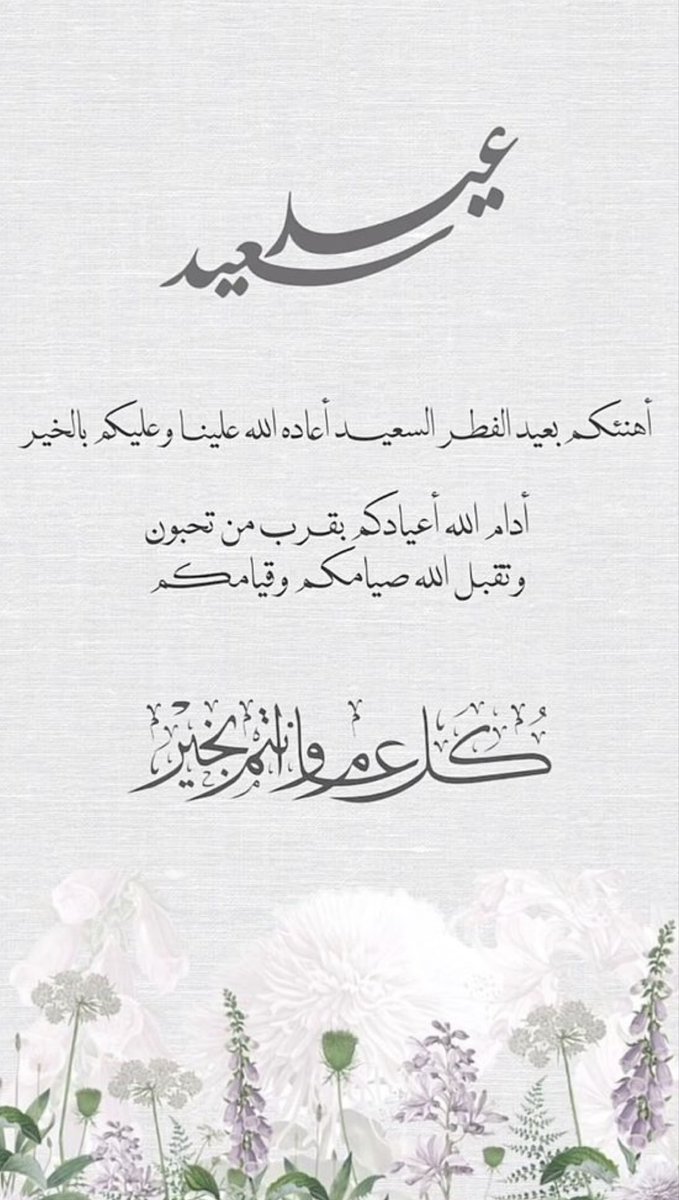 عيد
سعيد
أهنئكم بعيد الفطر السعيد أعاده الله علينا وعليكم بالخير
أدام الله أعيادكم بقرب من تحبون
وتقبل الله صيامكم وقيامكم
كُل عام وانتم بخيْر